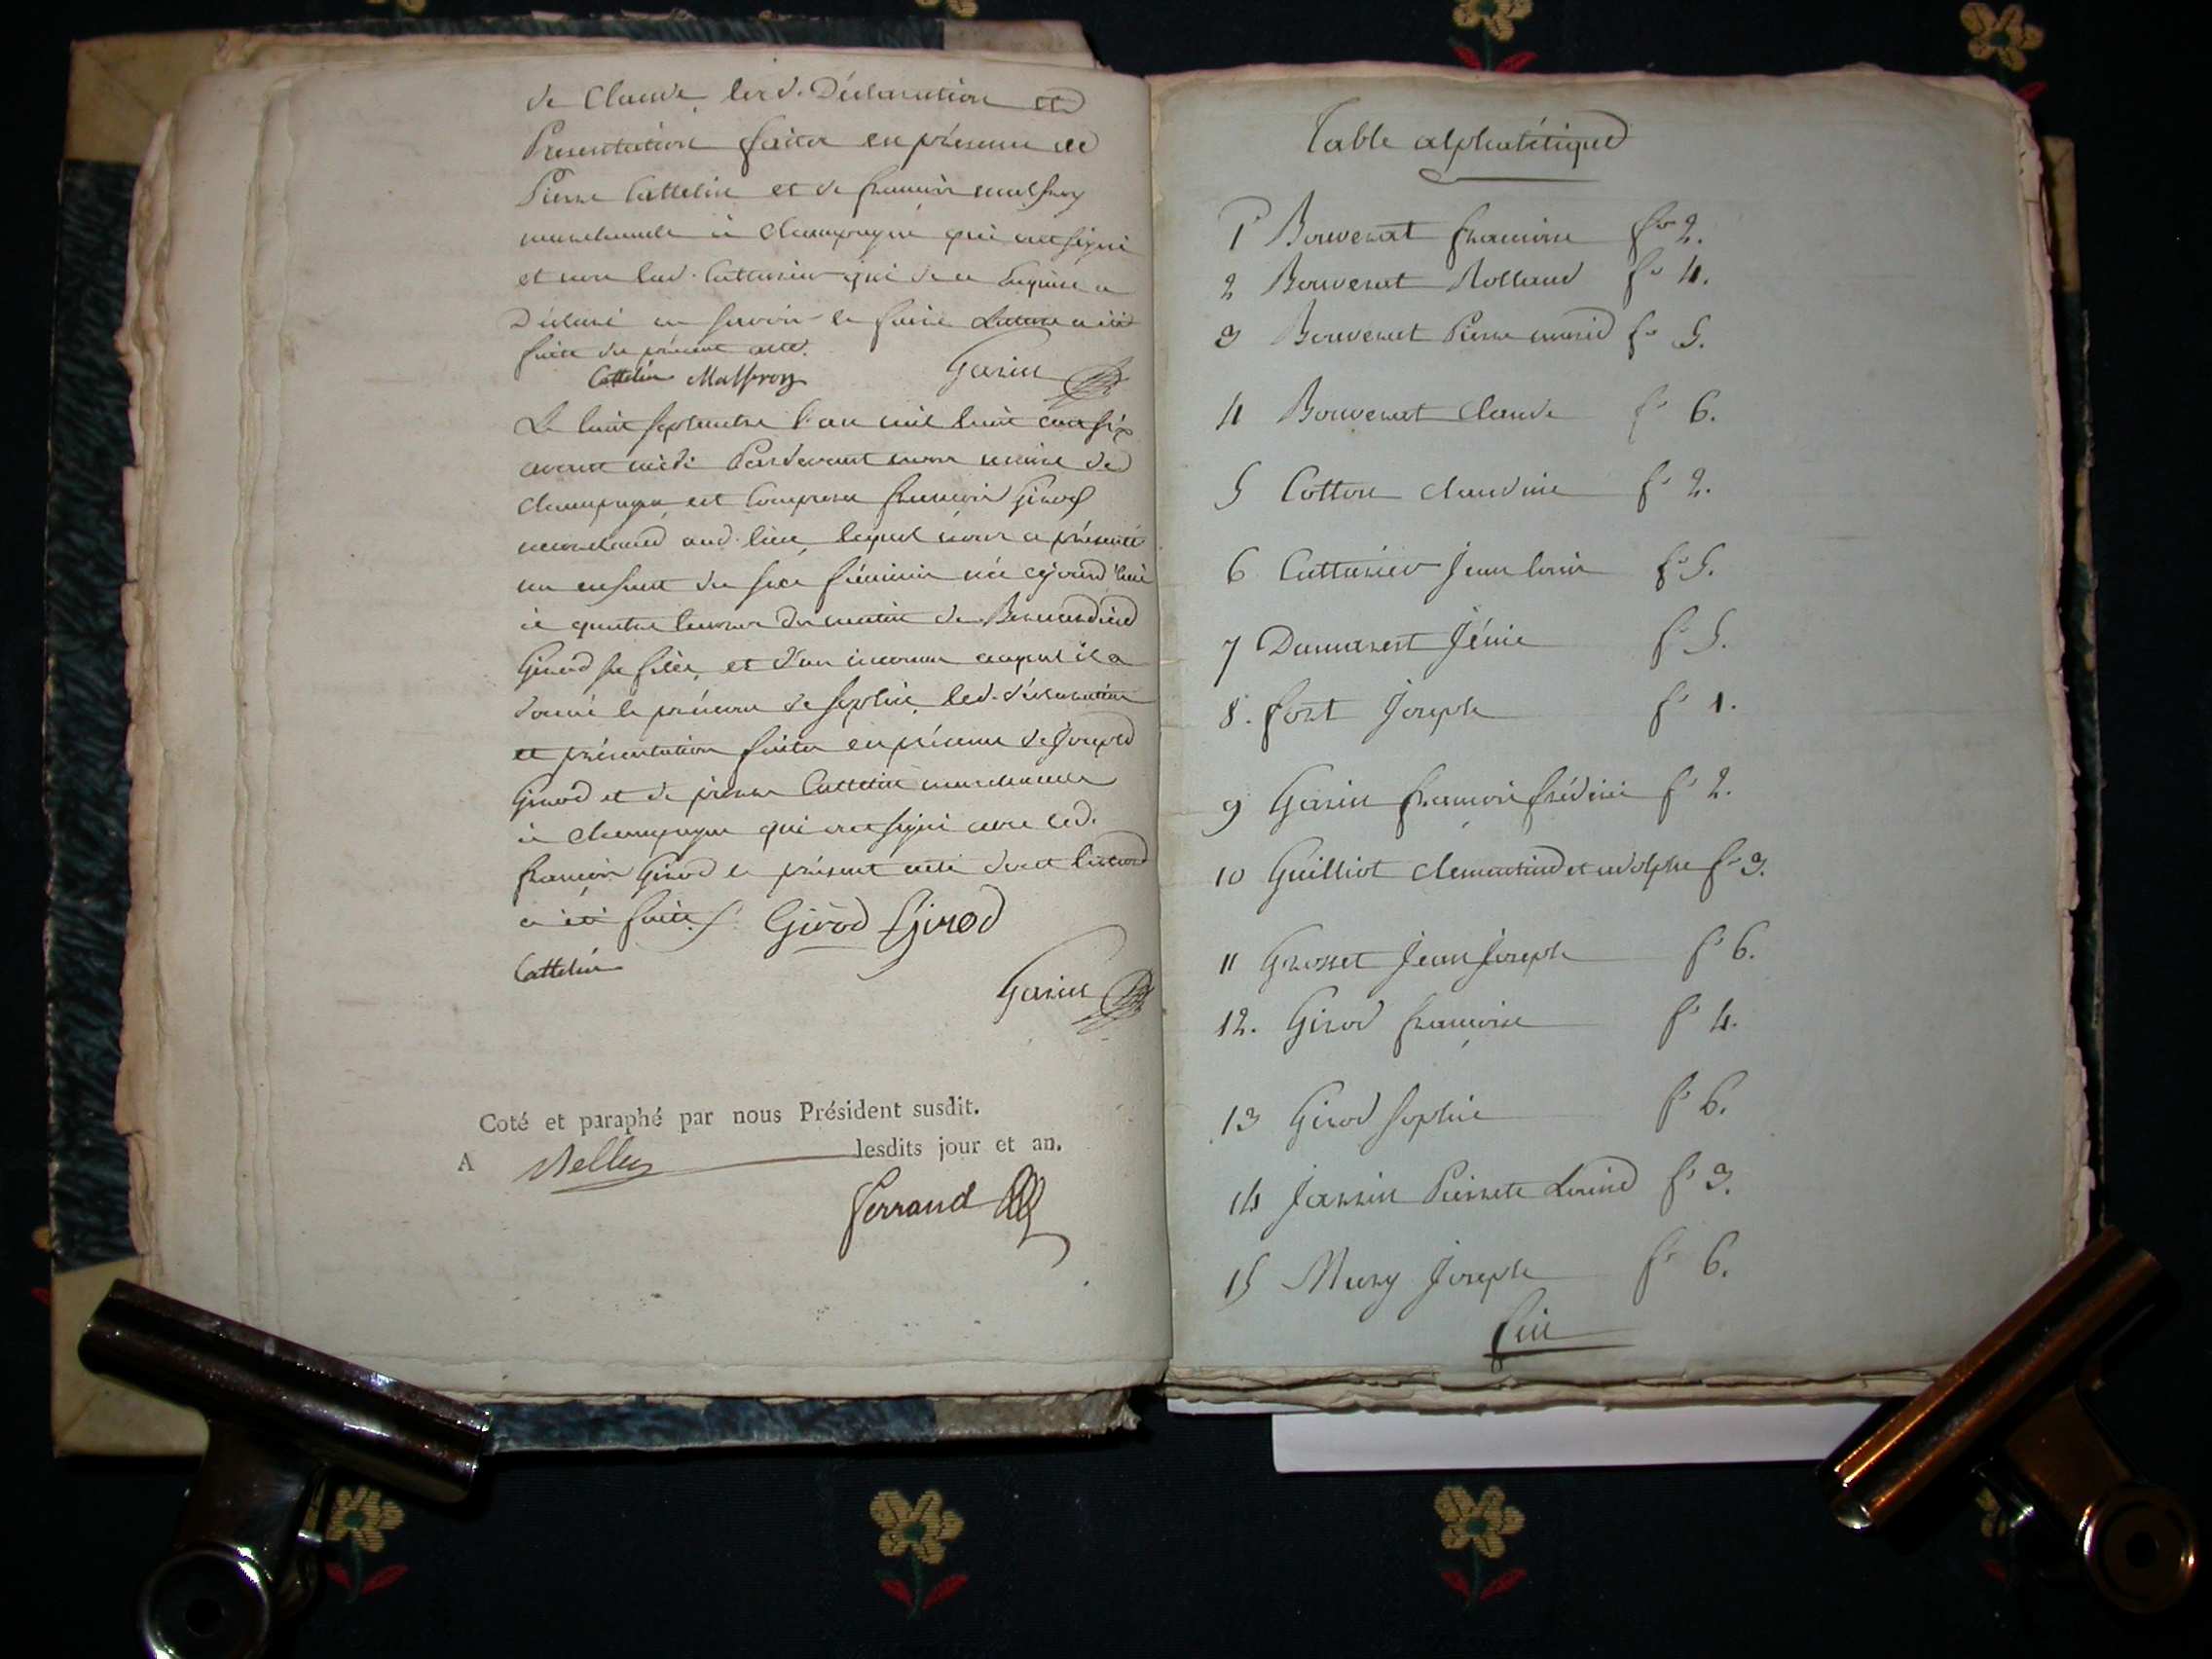 de Claude, lesd. Déclaration et
Presentation faites en présence de
Pierre Cattelin et de francois malfroy
marchands à Champagne qui ont signé
et non led. Cattanier qui de ce Enquise a
Déclaré ne savoir le faire Lecture a été
faite du présent acte.
Cattelin Malfroy Garin
Le huit septembre l'an mil huit cent six
avant midi Pardevant nous maire de
Champagne est Comparu francois Girod
marchand aud. lieu, lequel nous a présenté
un enfant du sexe féminin née ajourd'hui
à quatre heures du matin de Bernardine
Girod sa fille, et d'un inconnu auquel il a
donné le prénom de Sophie, lesd. déclaration
et présentation faites en présence de Joseph
Girod et de pierre Cattelin marchands
à champagne qui ont signé avec led.
francois Girod le présent acte dont lecture
a été faite. Girod Girod
Cattelin
Garin
Coté et paraphé par nous Président susdit.
A Belley lesdits jour et an.
Ferrand
Table alphabétique
1 Bouverat francoise fo 2.
2 Bouverat Rolland fo 4.
3 Bouverat Pierre marie fo 5.
4 Bouverat Claude fo 6.
5 Cotton claudine fo 2.
6 Cattanier Jean louis fo 5.
7 Dumarest Jénie fo 5.
8. fort Joseph fo 1.
9 Garin francois frédéric fo 2.
10 Guilliot clementine et adolphe fo 3.
11 Grosset Jean Joseph fo 6.
12. Girod francoise fo 4.
13 Girod Sophie fo 6.
14 Jarrin Pierrete Louise fo 3.
15 Mury Joseph fo 6.
fin